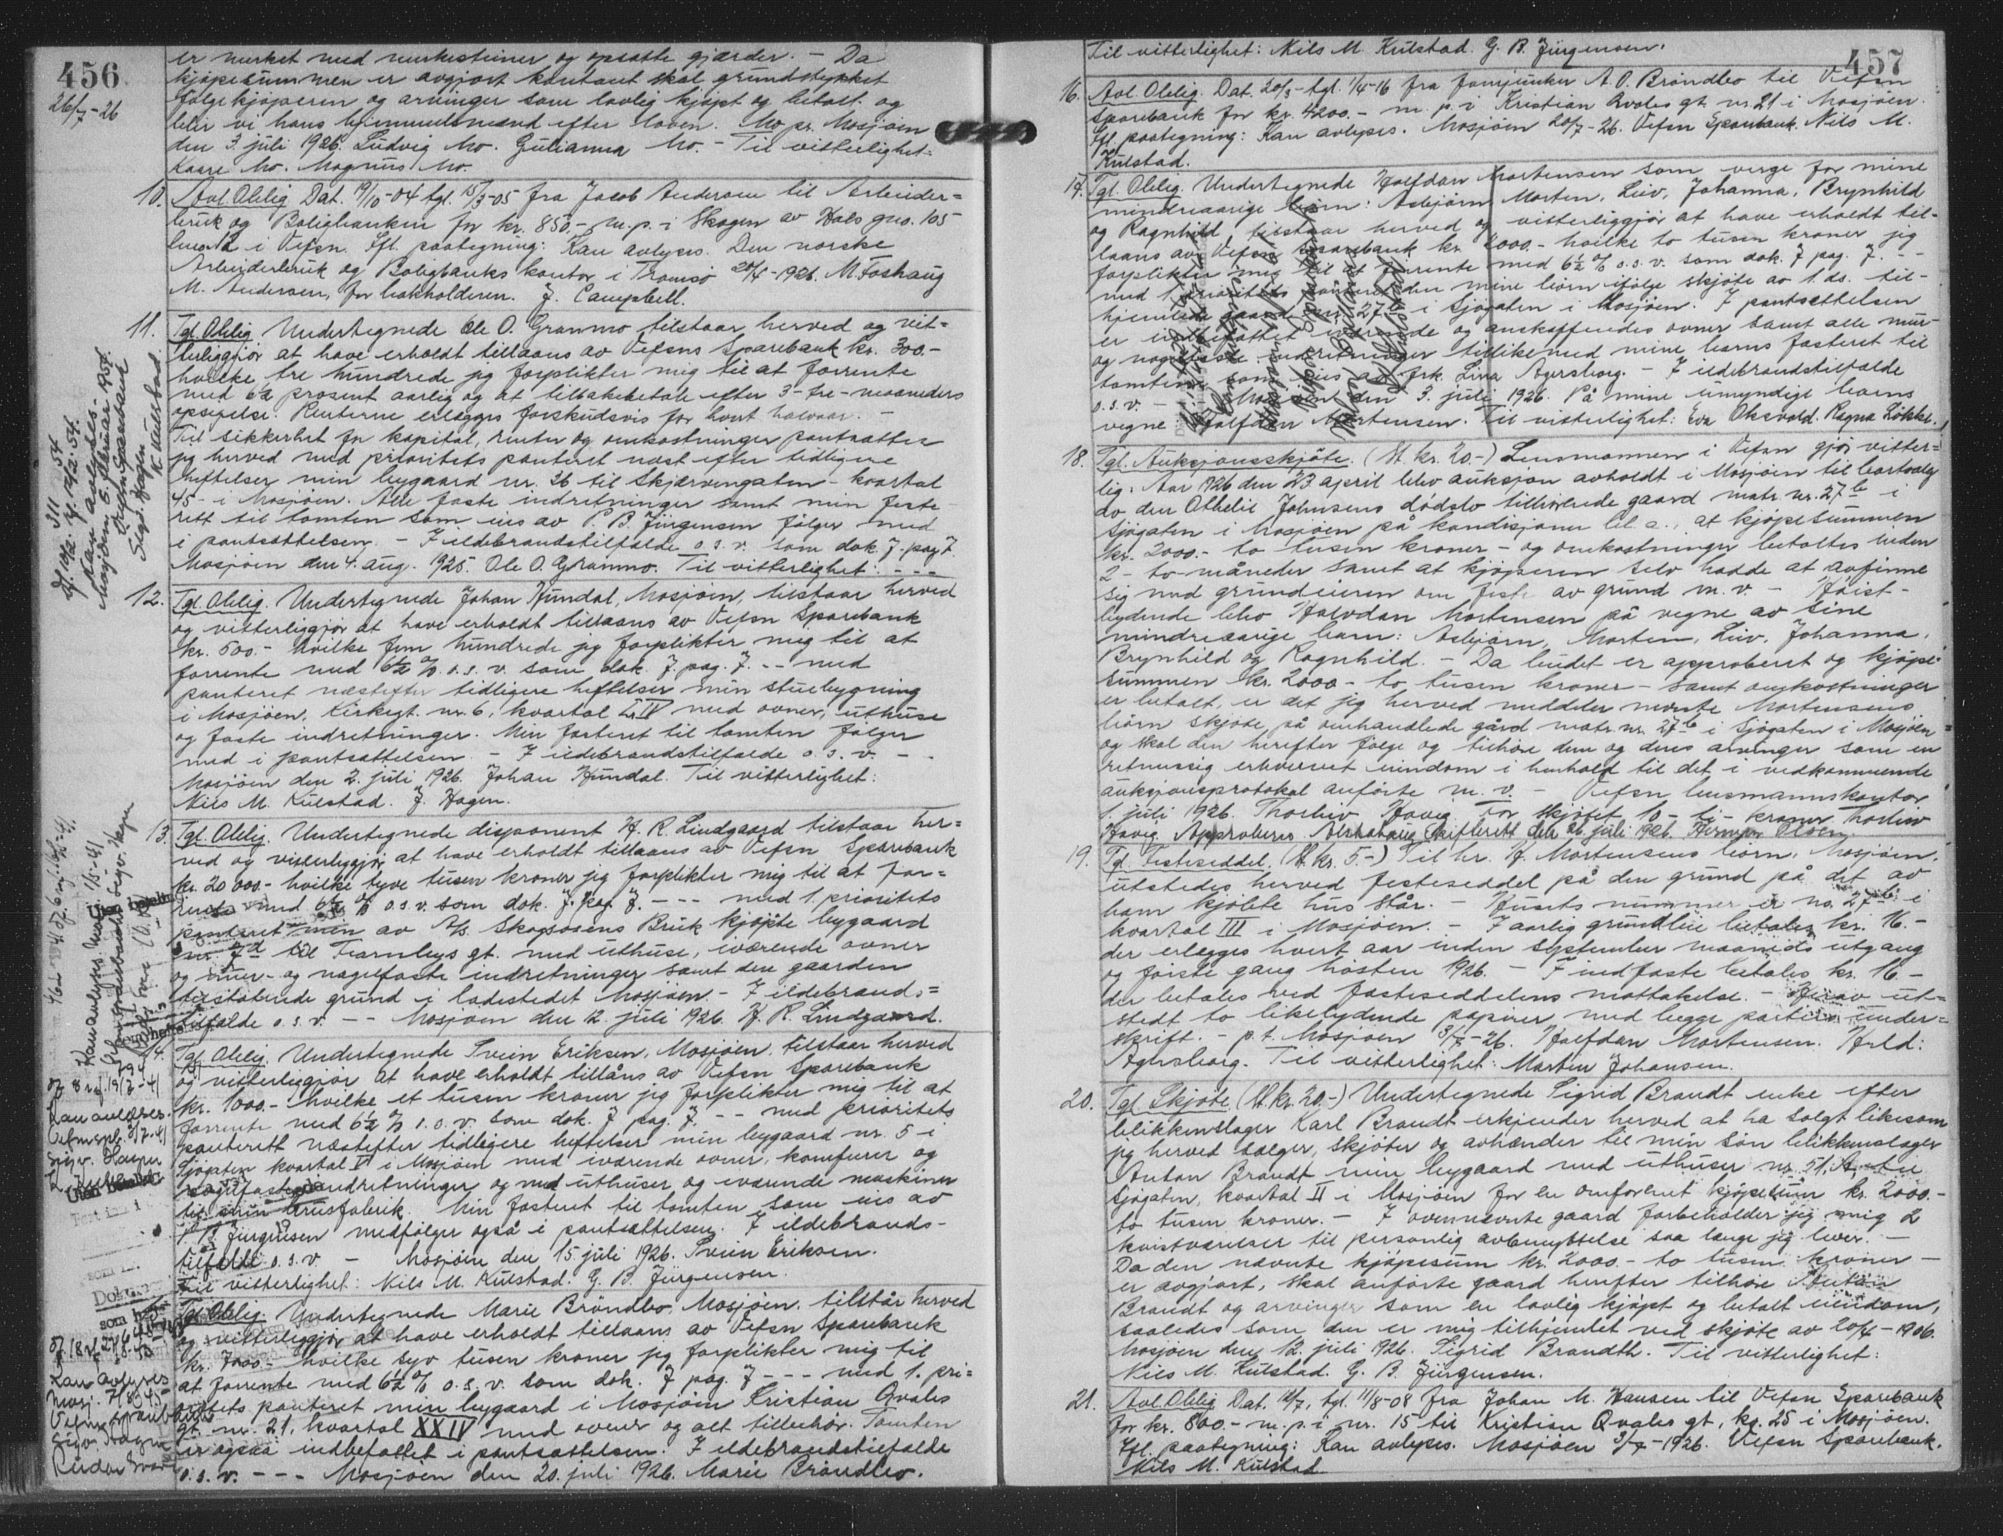 456
26/7-26
er merket med merkestener og opsatte gjærder. - Da
kjøpesummen er avgjort kontant skal grundstykket
følge kjøperen og arvinger som lovlig kjøpt og betalt og
blir vi hans hjemmelsmænd efter loven. Mo pr. Mosjøen
den 3. juli 1926. Ludvig Mo. Gulianna Mo. - Til vitterlighet:
Kaare Mo. Magnus Mo.
10. Avl. Oblig. Dat. 19/10-04 tgl. 15/3-05 fra Jacob Andersen til Arbeider=
bruk og Boligbanken for kr. 850.- m. p. i Skogen av Hals gno. 105
bno. 2 i Vefsn. Hft. paategning: Kan avlyses. Den norske
Arbeiderbruk og Boligbanks kontor i Tromsø 20/5-1926. M. Foshaug
M. Andersen, for bokholderen. J. Campbell.
11. Tgl. Oblig. Undertegnede Ole O. Granmo tilstaar herved og vit=
terliggjør at have erholdt tillaans av Vefsens Sparebank kr. 300.-
hvilke tre hundrede jeg forplikter mig til at forrente
med 6½ prosent aarlig og at tilbakebetale efter 3-tre-maaneders
opsigelse. Renterne erlægges forskudsvis for hvert halvaar. -
Til sikkerhet for kapital, renter og omkostninger pantsætter
jeg herved med prioritets panteret næst efter tidligere
heftelser min bygaard nr. 26 til Skjærvengaten - kvartal
45 - i Mosjøen. Alle faste indretninger samt min feste-
rett til tomten som eies av P. B. Jürgensen følger med
i pantsættelsen. - I ildebrandstilfælde o.s.v. som dok. 7. pag 7.
Mosjøen den 4. aug. 1925. Ole O. Granmo. Til vitterlighet: - - -
12. Tgl. Oblig. Undertegnede Johan Hundal, Mosjøen, tilstaar herved
og vitterliggjør at have erholdt tillaans av Vefsn Sparebank
kr. 500.- hvilke fem hundrede jeg forplikter mig til at
forrente med 6½ % o.s.v. som dok. 7 pag. 7. - - med
panteret næstefter tidligere heftelser min stuebygning
i Mosjøen, Kirkegt. nr. 6, kvartal LIV med ovner, uthuse
og faste indretninger. Min festeret til tomten følger
med i pantsættelsen. - I ildebrandstilfælde o.s.v. -
Mosjøen den 2. juli 1926. Johan Hundal. Til vitterlighet:
Nils M. Kulstad. J. Hagen.
13. Tgl. Oblig. Undertegnede disponent H. R. Lindgaard tilstaar her=
ved og vitterliggjør at have erholdt tillaans av Vefsn Sparebank
kr. 20 000.- hvilke tyve tusen kroner jeg forplikter mig til at for=
rente med 6½ % o.s.v. som dok. 7. pag. 7. - - - med 1. prioritets
panteret min av A/s Skogsosens Bruk kjøpte bygaard
nr. 7d til Fearnleys gt. med uthuse, iværende ovner
og mur- og nagelfaste indretninger samt den gaarden
tilstøtende grund i ladestedet Mosjøen. - I ildebrands=
tilfælde o.s.v. - - Mosjøen den 12. juli 1926. H. R. Lindgaard.
14. Tgl. Oblig. Undertegnede Svein Eriksen, Mosjøen, tilstaar herved
og vitterliggjør at have erholdt tillåns av Vefsn Sparebank
kr. 1000.- hvilke et tusen kroner jeg forplikter mig til at
forrente med 6½ % o.s.v. som dok. 7 pag. 7. - - med prioritets
panterett næstefter tidligere heftelser min bygaard nr. 5 i
Sjøgaten kvartal V i Mosjøen med iværende ovner, komfurer og
nagelfaste indretninger og med uthuser og iværende maskiner
til min brusfabrik. Min festeret til tomten som eies av
P. B. Jürgensen medfølger også i pantsættelsen. I ildebrands-
tilfælde o.s.v. - Mosjøen den 15. juli 1926. Svein Eriksen.
Til vitterlighet: Nils M. Kulstad. G. B. Jürgensen.
Tgl. Oblig. Undertegnede Marie Brøndbo, Mosjøen, tilstår herved
og vitterliggjør at have erholdt tillaans av Vefsn Sparebank
kr. 7000.- hvilke syv tusen kroner jeg forplikter mig til
at forrente med 6½ % o.s.v. som dok. 7 pag. 7 - - - med 1. pri-
oritets panteret min bygaard i Mosjøen Kristian Qvales
gt. nr. 21, kvartal XXIV med ovner og alt tilbehør. Tomten
er ogsaa indbefattet i pantsættelsen. I ildebrandstilfælde
o.s.v. - - - Mosjøen den 20. juli 1926. Marie Brøndbo.
Kan avlyses.
Mosjøen 6. februar 1954.
Vefsn Sparebank
Sigv. Hagen
K. Kulstad
457
Til vitterlighet: Nils M. Kulstad. G. B. Jürgensen.
16. Avl. Oblig. Dat. 20/3- tgl. 1/4-16 fra fanejunker A. O. Brøndbo til Vefsn
Sparebank for kr. 4200.- m. p. i Kristian Qvales gt. nr. 21 i Mosjøen.
Hft. paategning: Kan avlyses. Mosjøen 20/7-26. Vefsn Sparebank. Nils M.
Kulstad.
17. Tgl. Oblig. Undertegnede Halfdan Mortensen som verge for mine
mindreaarige børn: Asbjørn, Morten, Liv, Johanna, Brynhild
og Ragnhild, tilstaar herved og vitterliggjør at have erholdt til-
laans av Vefsn Sparebank kr. 2000.- hvilke to tusen kroner jeg
forplikter mig til at forrente med 6½ % o.s.v. som dok. 7 pag. 7. - -
med 1. prioritets panteret den mine børn ifølge skjøte av 1. ds. til-
hjemlede gaard nr. 27 b i Sjøgaten i Mosjøen. I pantsættelsen
er indbefattet iværende og anskaffendes ovner samt alle mur-
og nagelfaste indretninger tillikemed mine barns festeret til
tomten som eies av frk. Lina Agersborg. - I ildebrandstilfælde
o.s.v. - Mosjøen den 3. juli 1926. På mine umyndige barns
vegne Halfdan Mortensen. Til vitterlighet: Eva Oksvold. Ragna Løkke.
18. Tgl. Auksjonsskjøte. (St. kr. 20.-) Lensmannen i Vefsn gjør vitter-
lig: Aar 1926 den 23 april blev auksjon avholdt i Mosjøen til bortsalg
av den Othelie Johnsens dødsbo tilhørende gaard matr. nr. 27b i
Sjøgaten i Mosjøen på kondisjoner bl. a., at kjøpesummen
kr. 2000.- to tusen kroner - og omkostninger betaltes inden
2 - to - måneder samt at kjøperen selv hadde at avfinne
sig med grundeieren om feste av grund m. v. - Høist-
bydende blev Halvdan Mortensen på vegne av sine
mindreaarige barn: Asbjørn, Morten, Liv, Johanna,
Brynhild og Ragnhild. - Da budet er approberet og kjøpe-
summen kr. 2000 - to tusen kroner - samt omkostninger
er betalt, er det jeg herved meddeler nevnte Mortensens
børn skjøte på omhandlede gård matr. nr. 27b i Sjøgaten i Mosjøen
og skal den herefter følge og tilhøre dem og deres arvinger som en
retmessig erhvervet eiendom i henhold til det i vedkommende
auksjonsprotokol anførte m. v. - Vefsn lensmannskontor
1. juli 1926. Thorleiv Havig. For skjøtet 10 - ti - kroner Thorleiv
Havig. Approberes. Alstahaug skifterett den 26. juli 1926. Herman Olsen.
19. Tgl. Festeseddel. (St. kr. 5.-) Til hr. H. Mortensens børn, Mosjøen,
utstedes herved festeseddel på den grund på det av
ham kjøbte hus står. - Husets nummer er no. 27b i
kvartal III i Mosjøen. - I aarlig grundleie betales kr. 16.-
der erlegges hvert aar inden september maaneds utgang
og første gang høsten 1926. - I indfæste betales kr. 16 -
der betales ved festeseddelens mottakelse. - Herav ut=
stedt to likelydende papirer med begge parters under=
skrift. - p. t. Mosjøen 3/7-26. Halfdan Mortensen. Hild:
Agersborg. Til vitterlighet: Martin Johansen.
20. Tgl. Skjøte (St. kr. 20.-) Undertegnede Sigrid Brandt enke efter
blikkenslager Karl Brandt erkjender herved at ha solgt likesom
jeg herved sælger, skjøter og avhænder til min søn blikkenslager
Anton Brandt min bygaard med uthuser nr. 51, A
Sjøgaten, kvartal II i Mosjøen for en omforenet kjøpesum kr. 2000.-
to tusen kroner. - I ovennævnte gaard forbeholder jeg mig 2
kvistværelser til personlig avbenyttelse saa længe jeg lever. -
Da den nævnte kjøpesum kr. 2000.- to tusen kroner -
er avgjort, skal anførte gaard herefter tilhøre Anton
Brandt og arvinger som en lovlig kjøpt og betalt eiendom,
saaledes som den er mig tilhjemlet ved skjøte av 20/4-1906.
Mosjøen den 12. juli 1926. Sigrid Brandth. Til vitterlighet:
Nils M. Kulstad. G. B. Jürgensen.
21. Avl. Oblig. Dat. 10/7, tgl. 11/8-08 fra Johan M. Hansen til Vefsn Sparebank
for kr. 800.- m. p. i nr. 15 til Kristian Qvales gt, kv. 25 i Mosjøen.
Hft. paategning: Kan avlyses. Mosjøen 3/7-1926. Vefsn Sparebank.
Nils M. Kulstad.